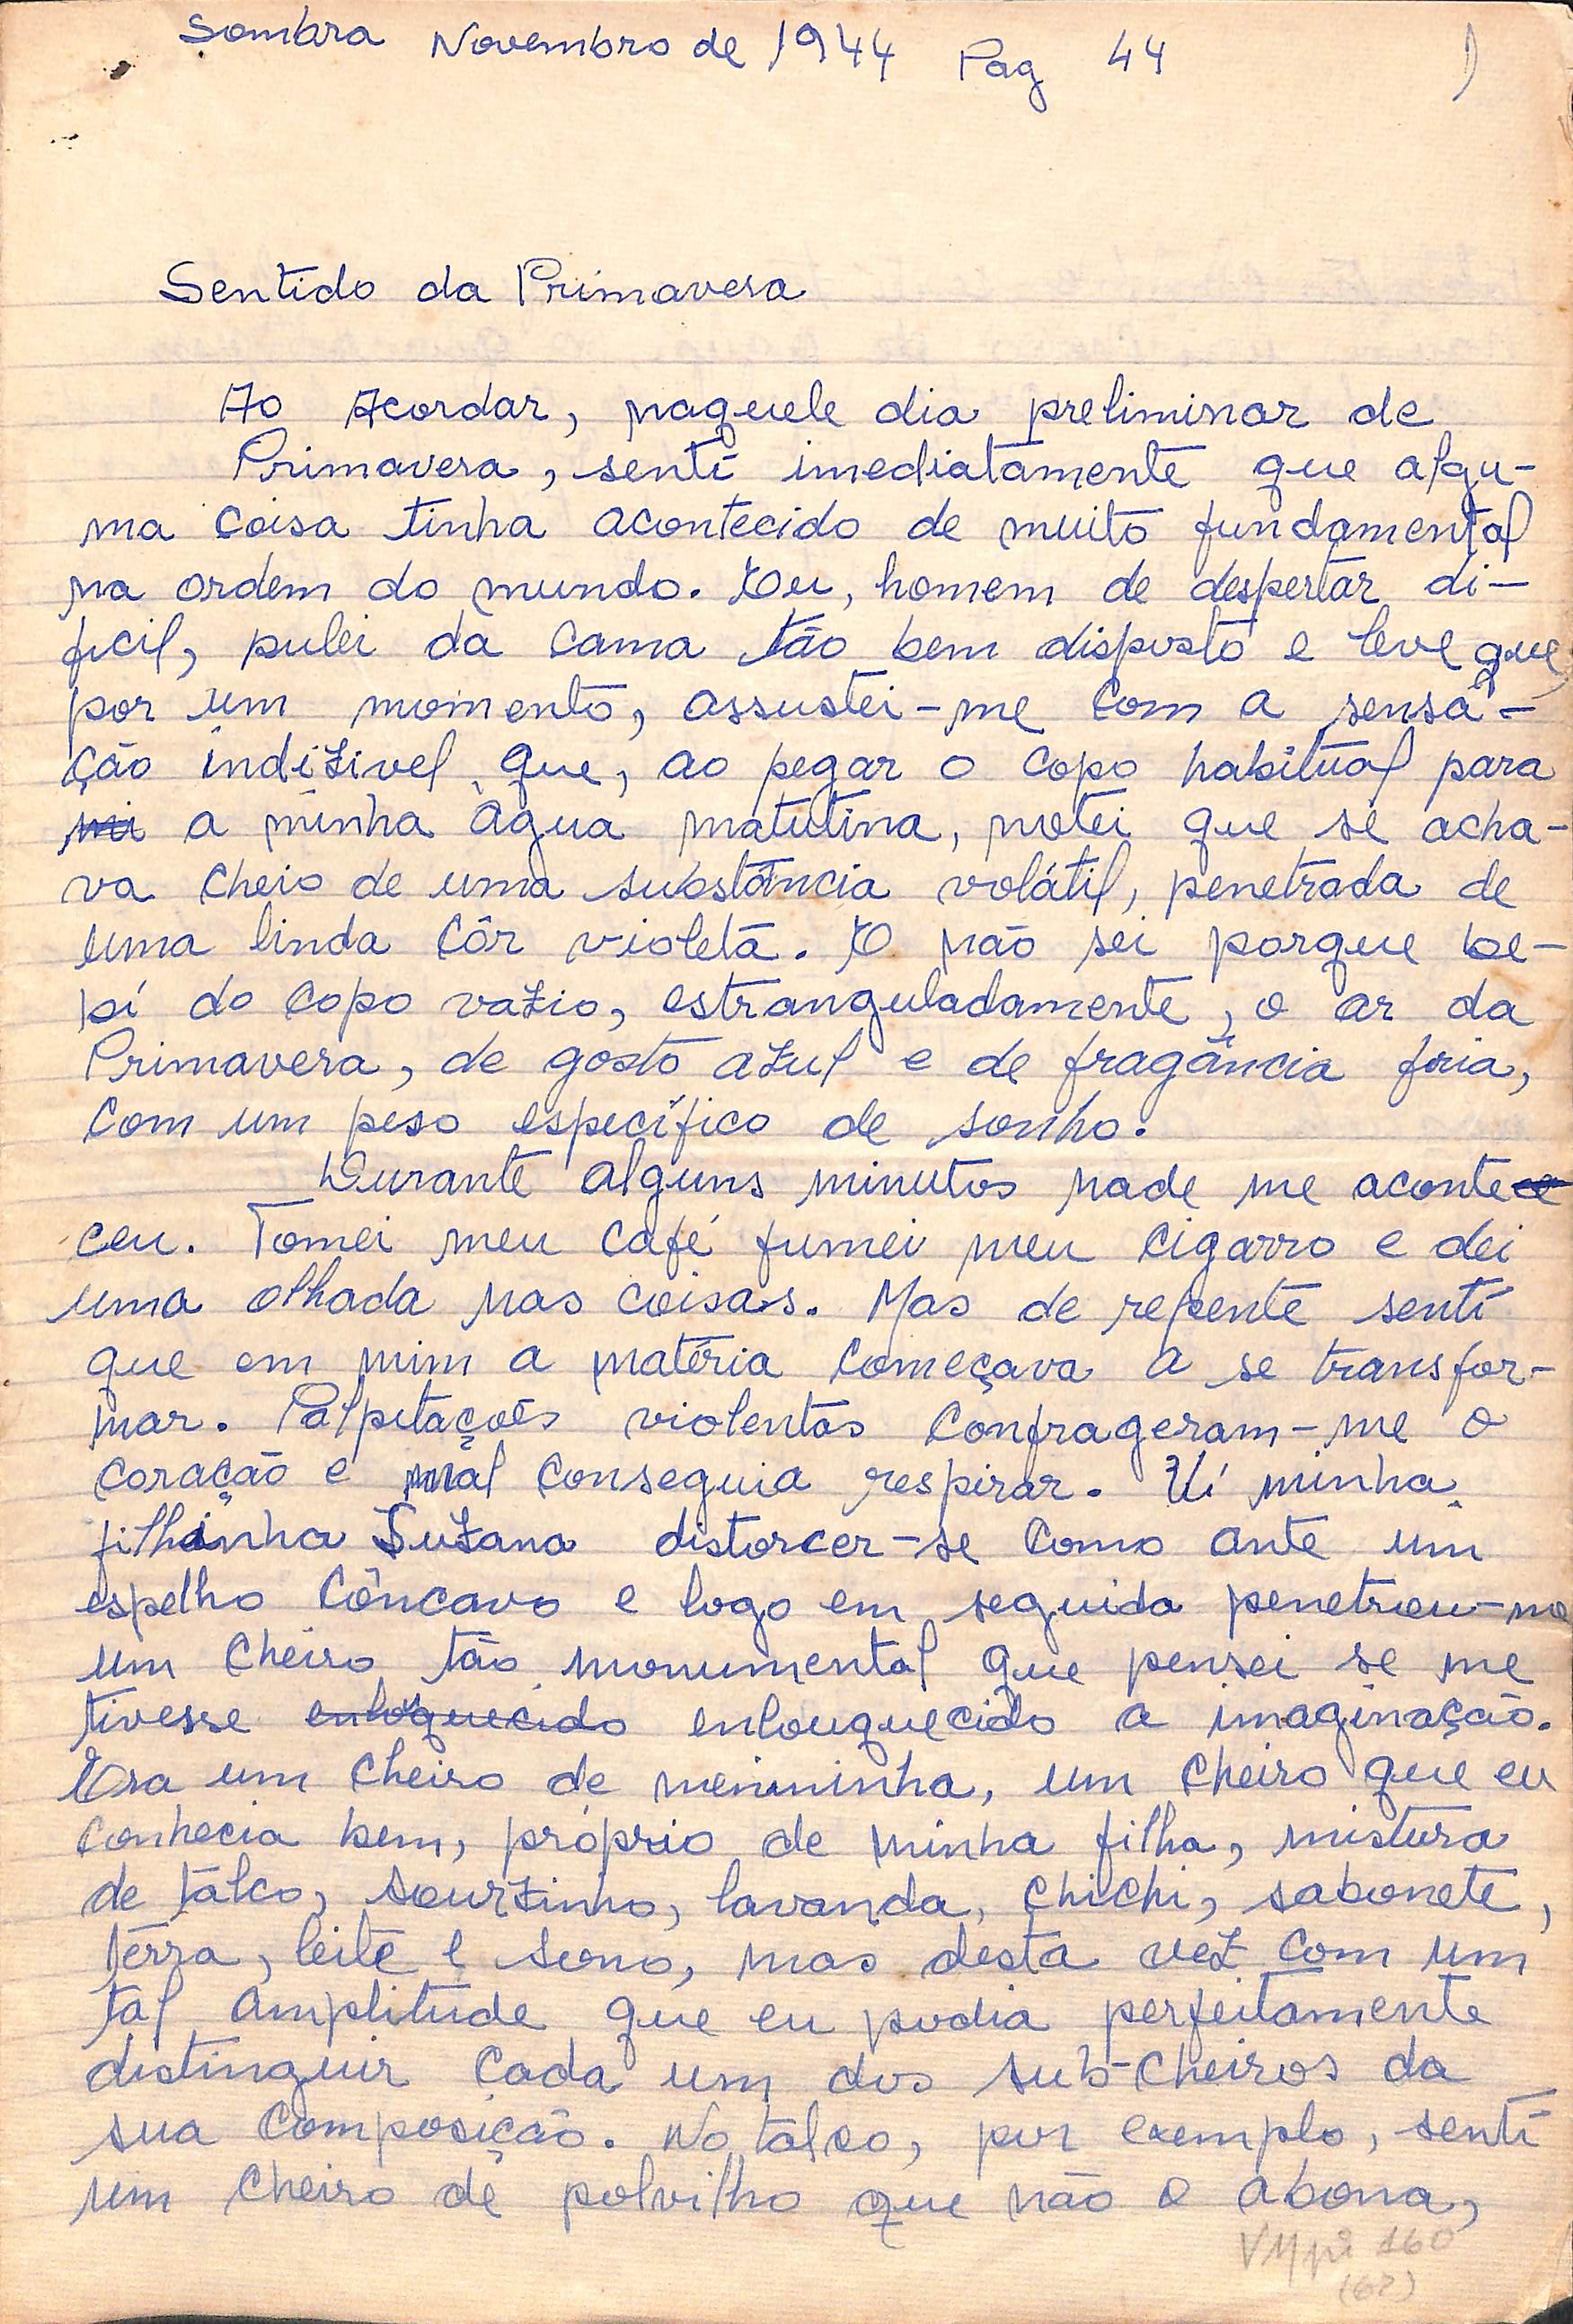 Sombra Novembro de 1944 Pag 44 1)
Sentido da Primavera
Ao Acordar, naquele dia preliminar de
Primavera, sentí imediatamente que algu-
ma coisa tinha acontecido de muito fundamental
na ordem do mundo. Eu, homem de despertar di-
ficil, pulei da cama tão bem disposto e leve que,
por um momento, assustei-me com a sensa-
ção indizivel que, ao pegar o copo habitual para
mi a minha água matutina, notei que se acha-
va cheio de uma substância volátil, penetrada de
uma linda côr violeta. E não sei porque be-
bí do copo vazio, estranguladamente, o ar da
Primavera, de gosto azul e de fragância fria,
com um peso específico de sonho.
Durante alguns minutos nade me aconte
ceu. Tomei meu café fumei meu cigarro e dei
uma olhada nas coisas. Mas de repente sentí
que em mim a matéria começava a se transfor-
mar. Palpitações violentas confrageram-me o
coração e mal conseguia respirar. Ví minha
filhinha Suzana distorcer-se como ante um
espelho côncavo e logo em seguida penetrou-me
um cheiro tão monumental que pensei se me
tivesse enloquecido enlouquecido a imaginação.
Era um cheiro de menininha, um cheiro que eu
conhecia bem, próprio de minha filha, mistura
de talco, sourzinho, lavanda, chichi, sabonete,
terra, leite e sono, mas desta vez com um
tal amplitude que eu podia perfeitamente
distinguir cada um dos sub-cheiros da
sua composição. No talco, por exemplo, sentí
um cheiro de polvilho que não o abona,
VMpi 160
(62)